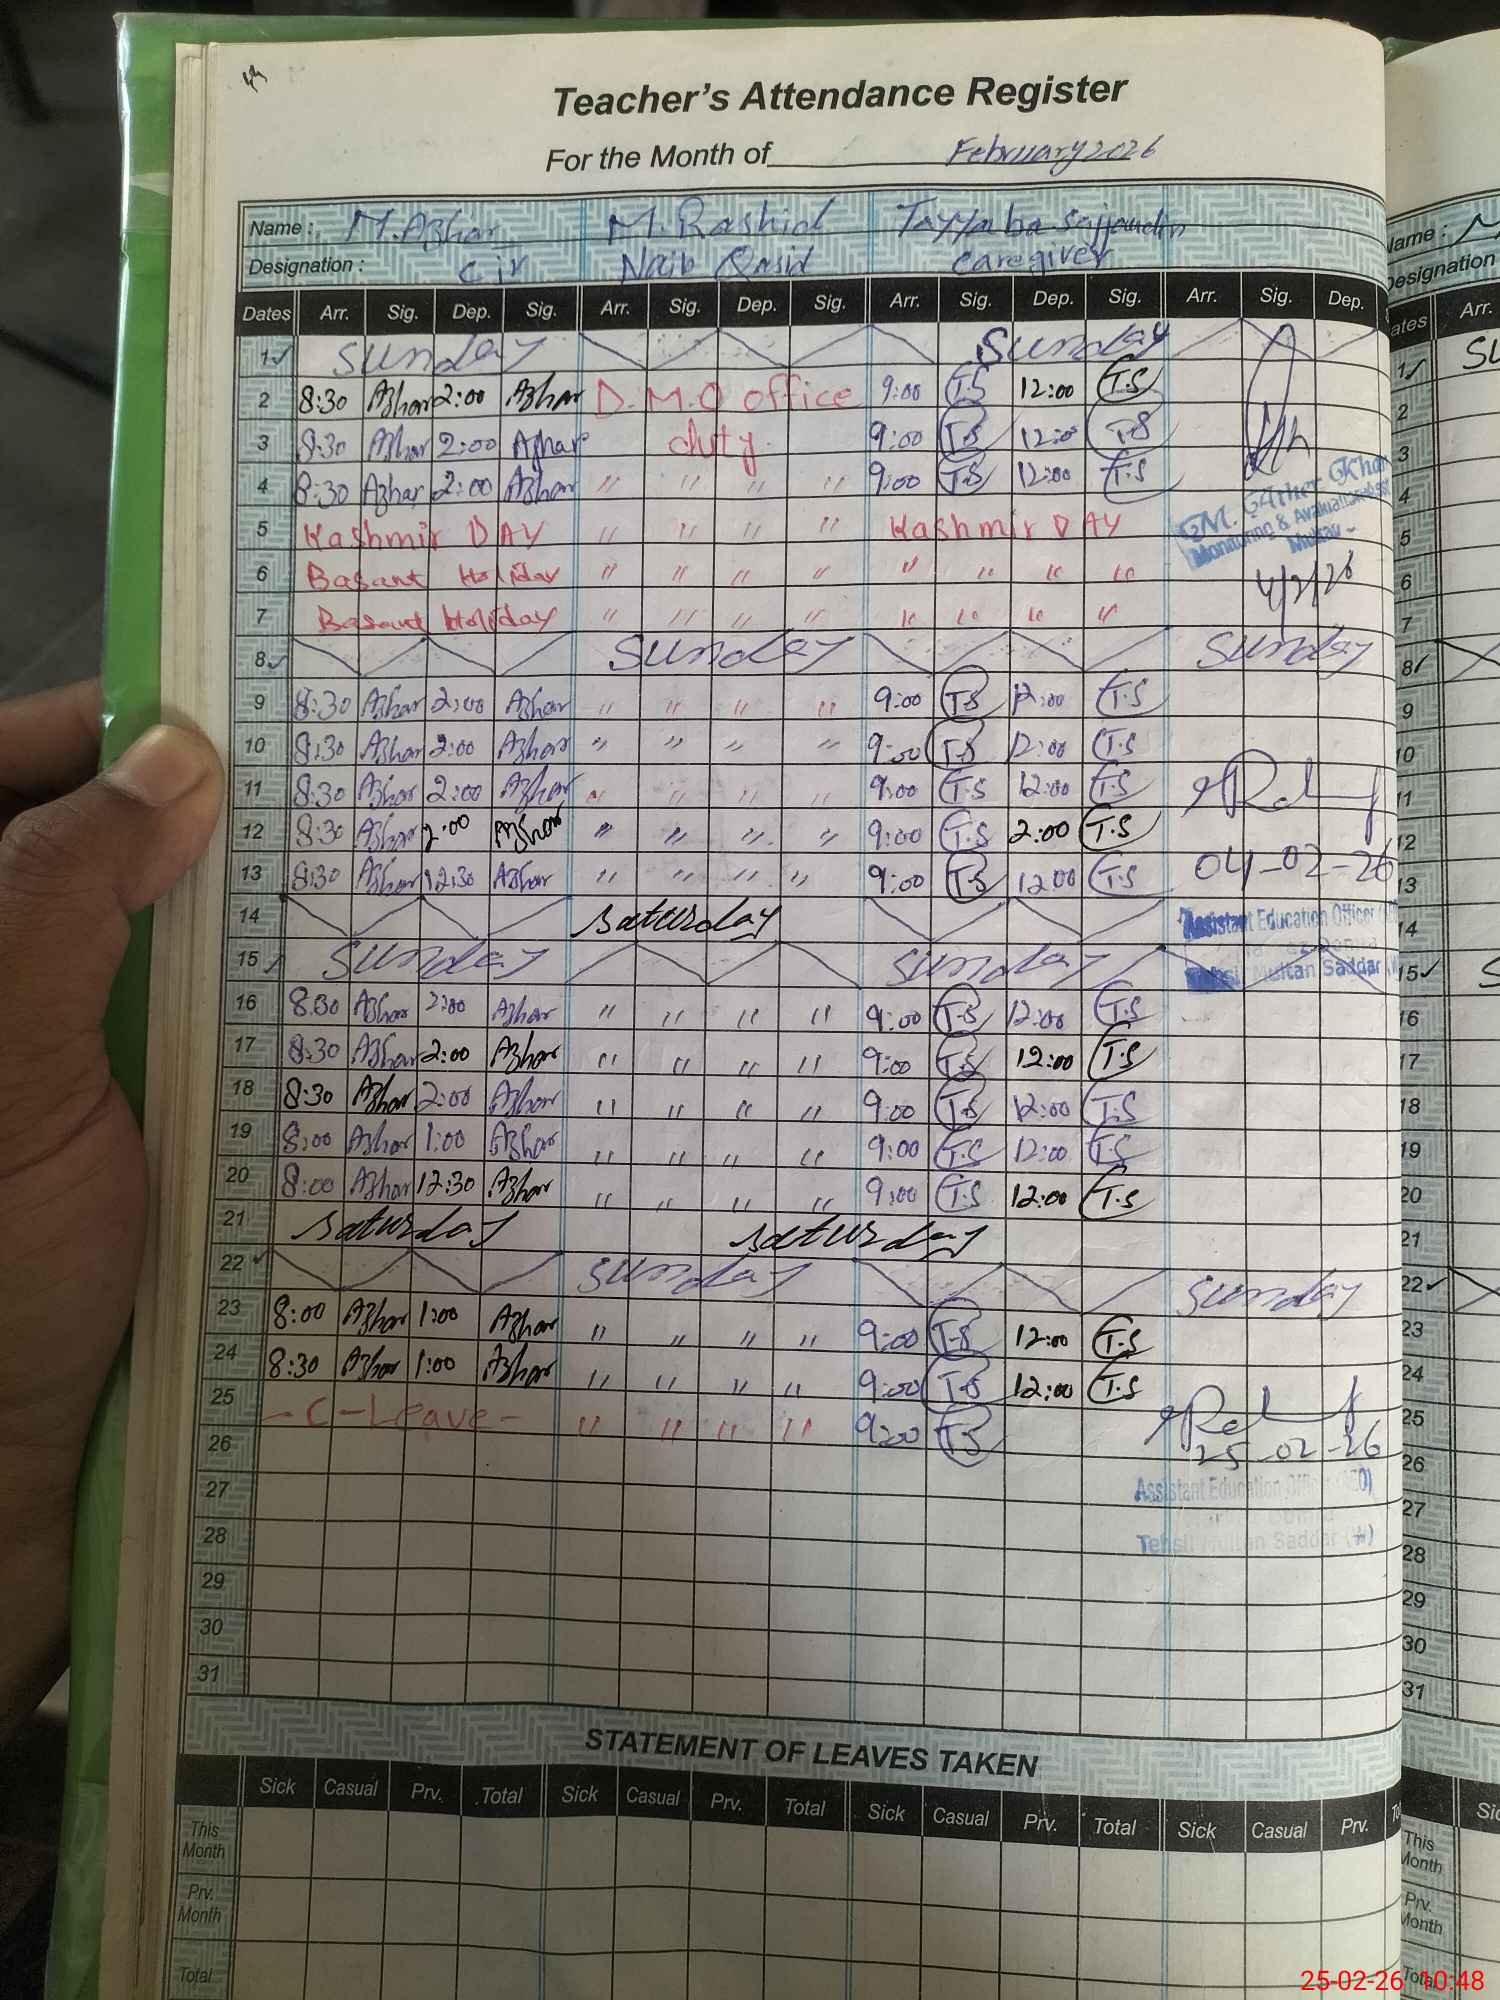 Teacher's Attendance Register
For the Month of February 2026
Name : M. Azhar M. Rashid Tayyaba Sajjaudin
Designation : Naib Qasid Caregiver
Dates Arr. Sig. Dep. Sig. Arr. Sig. Dep. Sig. Arr. Sig. Dep. Sig. Arr. Sig. Dep.
1 ✓ Sunday Sunday
2 8:30 Azhar 2:00 Azhar D.M.O office 9:00 T.S 12:00 T.S
3 8:30 Azhar 2:00 Azhar duty 9:00 T.S 12:00 T.S
4 8:30 Azhar 2:00 Azhar " " " " 9:00 T.S 12:00 T.S
5 Kashmir DAY " " " Kashmir DAY
6 Basant Holiday " " " " " " " "
7 Basant Holiday " " " " " " " "
4/2/26
8 ✓ Sunday Sunday
9 8:30 Azhar 2:00 Azhar " " " " 9:00 T.S 12:00 T.S
10 8:30 Azhar 2:00 Azhar " " " " 9:00 T.S 12:00 T.S
11 8:30 Azhar 2:00 Azhar " " " " 9:00 T.S 12:00 T.S
12 8:30 Azhar 2:00 Azhar " " " " 9:00 T.S 2:00 T.S
13 8:30 Azhar 12:30 Azhar " " " " 9:00 T.S 12:00 T.S
04-02-26
14 Saturday
Assistant Education Officer
15 ✓ Sunday Sunday
Multan Saddar
16 8:30 Azhar 2:00 Azhar " " " " 9:00 T.S 12:00 T.S
17 8:30 Azhar 2:00 Azhar " " " " 9:00 T.S 12:00 T.S
18 8:30 Azhar 2:00 Azhar " " " " 9:00 T.S 12:00 T.S
19 8:00 Azhar 1:00 Azhar " " " " 9:00 T.S 12:00 T.S
20 8:00 Azhar 12:30 Azhar " " " " 9:00 T.S 12:00 T.S
21 Saturday Saturday
22 ✓ Sunday Sunday
23 8:00 Azhar 1:00 Azhar " " " " 9:00 T.S 12:00 T.S
24 8:30 Azhar 1:00 Azhar " " " " 9:00 T.S 12:00 T.S
25 - C - Leave - " " " " 9:00 T.S
25-02-26
26
Assistant Education Officer
27
28
Tehsil Multan Saddar
29
30
31
STATEMENT OF LEAVES TAKEN
Sick Casual Prv. Total Sick Casual Prv. Total Sick Casual Prv. Total Sick Casual Prv.
This Month
Prv. Month
Total
Name :
Designation
Arr.
1 ✓
2
3
4
5
6
7
8 ✓
9
10
11
12
13
14
15 ✓
16
17
18
19
20
21
22 ✓
23
24
25
26
27
28
29
30
31
This Month
Prv. Month
Total
25-02-26 10:48